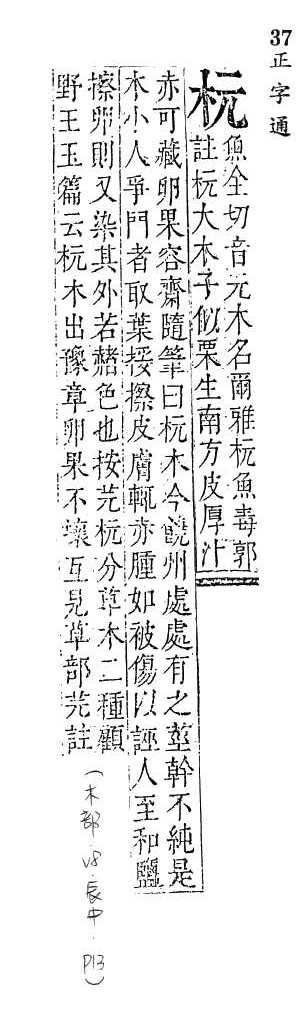 37正字通
杬
魚全切音元木名爾雅杬魚毒郭
註杬大木子似栗生南方皮厚汁
赤可藏卵果容齋隨筆曰杬木今饒州處處有之莖幹不純是
木小人爭鬥者取葉挼擦皮膚輒赤腫如被傷以誣人至和鹽
擦卵則又染其外若赭色也按芫杬分草木二種顧
野王玉篇云杬木出豫章卵果不壞互見草部芫註
(木部 V8 辰中 P13)